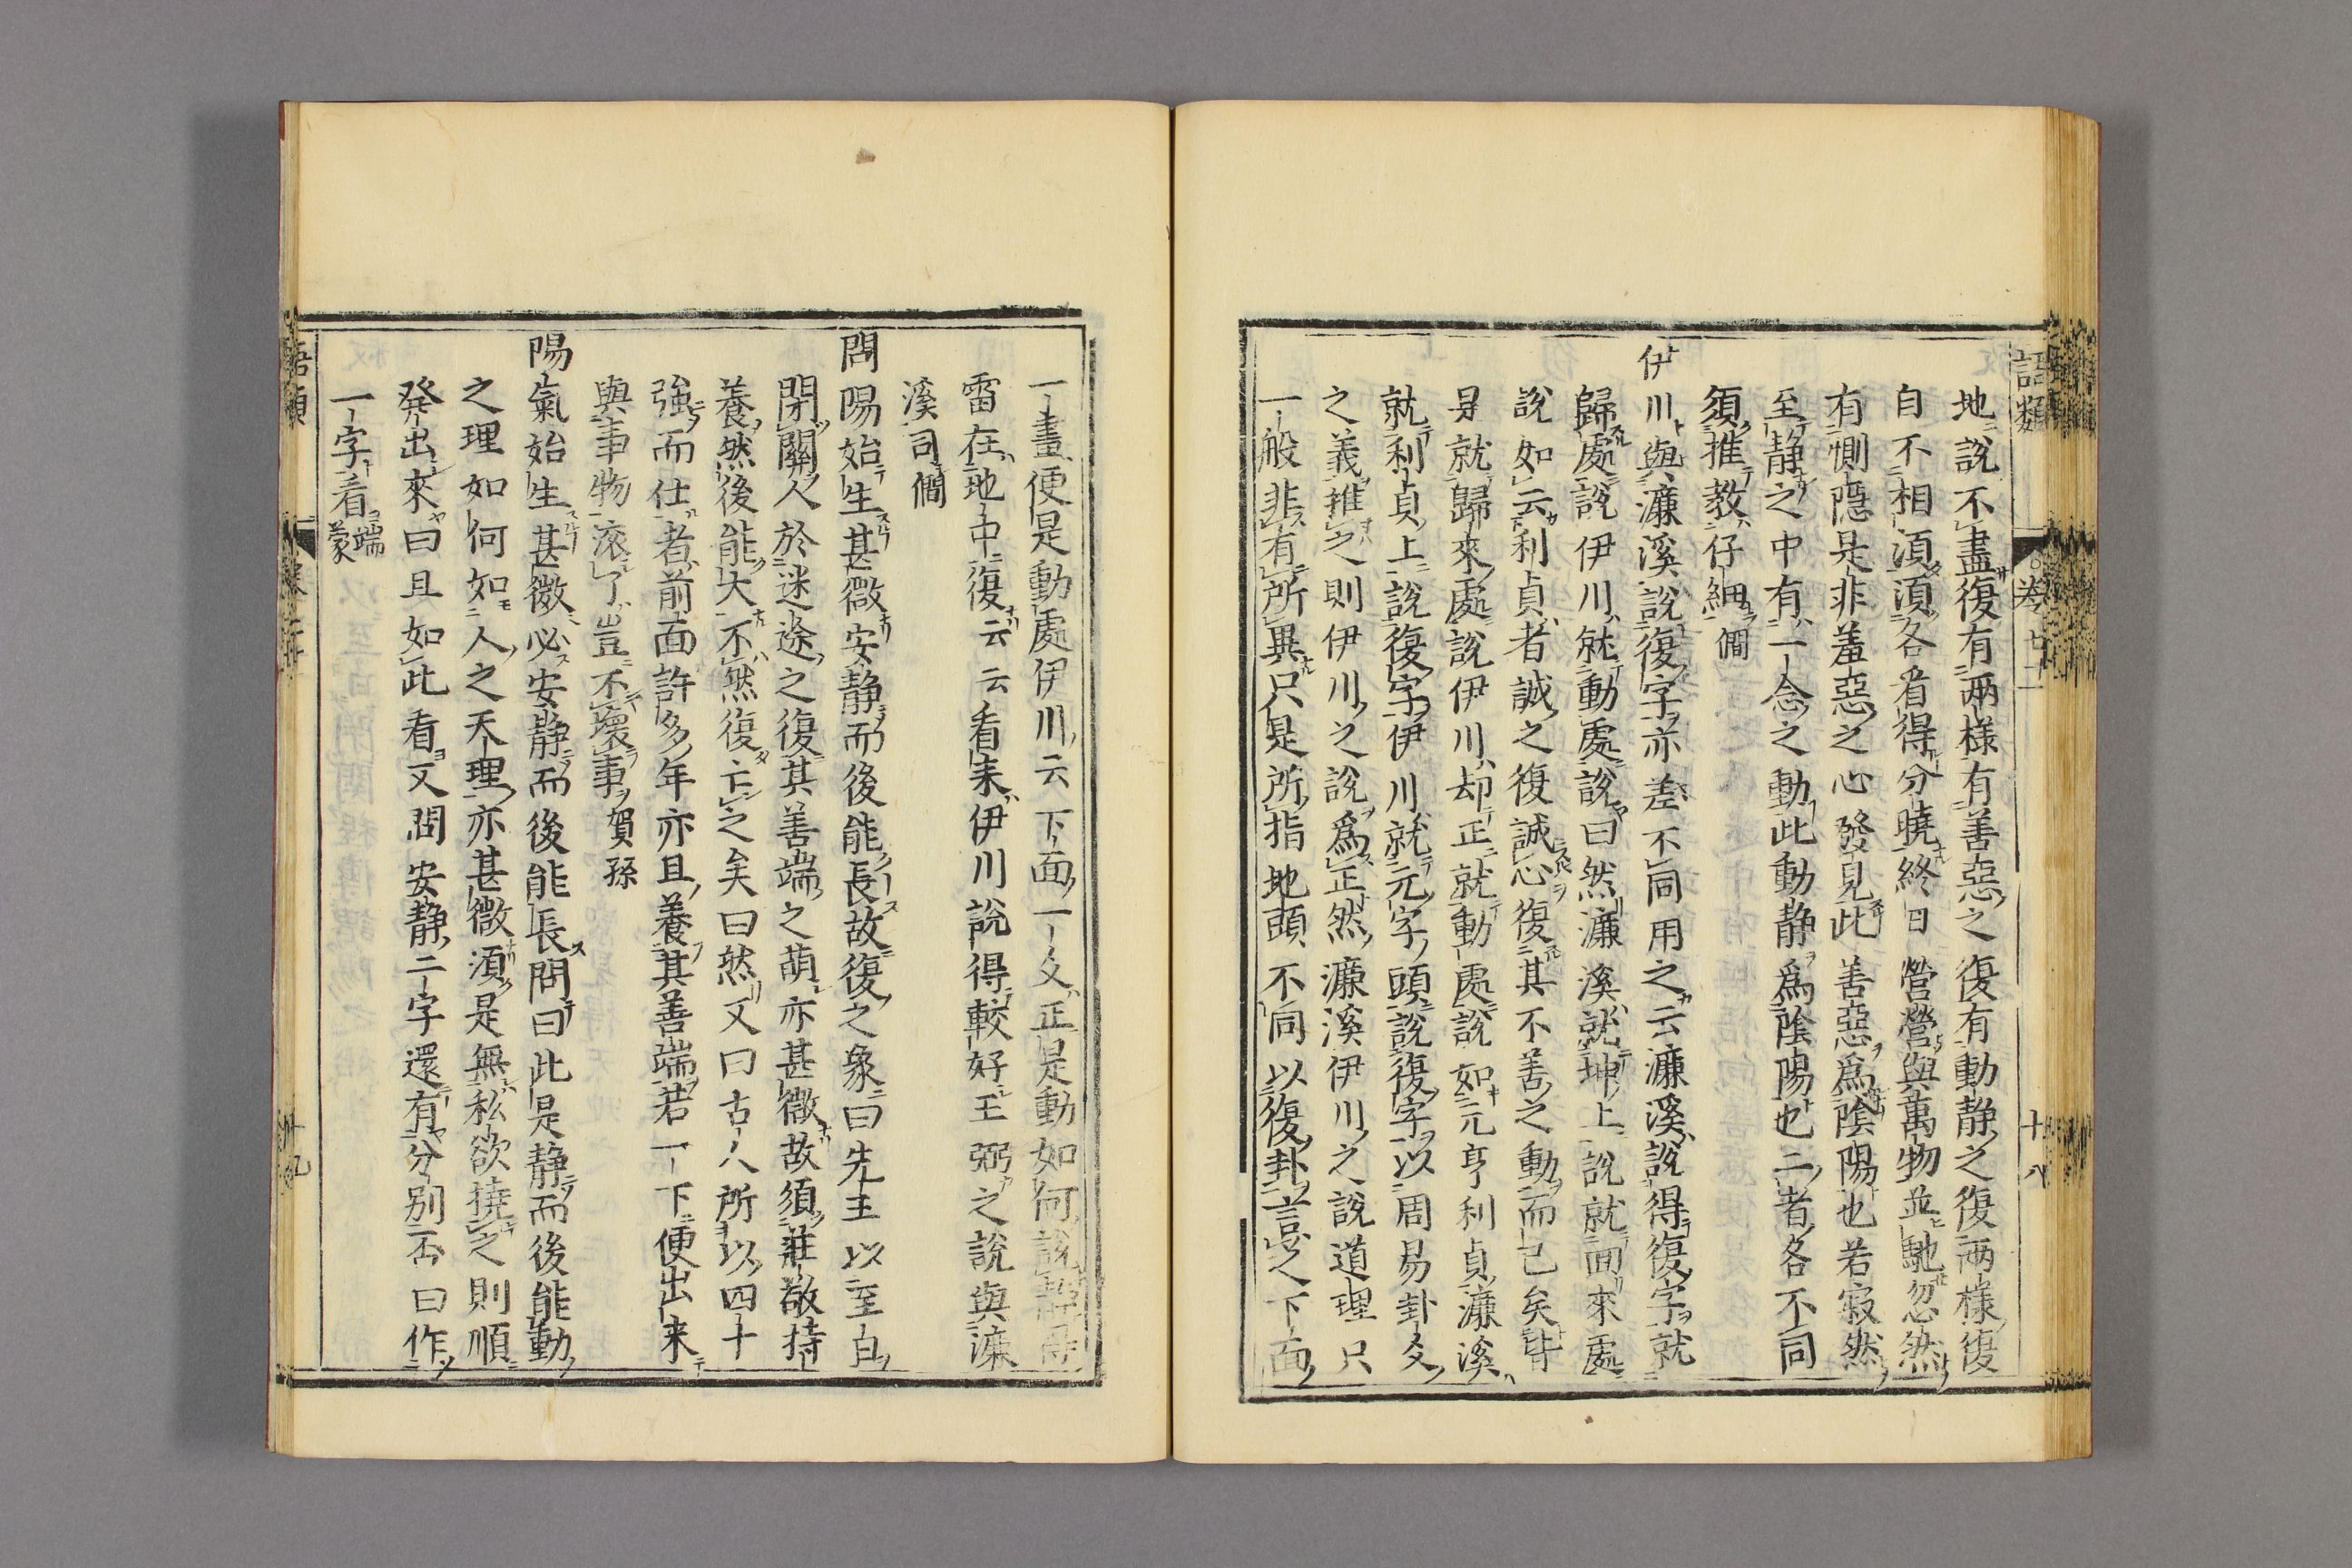 語類
卷七十一
十八
地說不盡復有兩樣有善惡之復有動静之復兩樣復
自不相須須各看得分曉終日營營與萬物並馳忽然
有惻隱是非羞惡之心發見此善惡爲陰陽也若寂然
至静之中有一念之動此動静爲陰陽也二者各不同
須推教仔細僩
伊川與濂溪說復字亦差不同用之云濂溪說得復字就
歸處說伊川就動處說曰然濂溪就坤上說就回來處
說如云利貞者誠之復誠心復其不善之動而已矣皆
是就歸來處說伊川却正就動處說如元亨利貞濂溪
就利貞上說復字伊川就元字頭說復字以周易卦爻
之義推之則伊川之說爲正然濂溪伊川之說道理只
一般非有所異只是所指地頭不同以復卦言之下面
一畫便是動處伊川云下面一爻正是動如何說静得
雷在地中復云云看来伊川說得較好王弼之說與濂
溪同僩
問陽始生甚微安静而後能長故復之象曰先王以至日
閉關人於迷途之復其善端之萌亦甚微故須莊敬持
養然後能大不然復亡之矣曰然又曰古人所以四十
強而仕者前面許多年亦且養其善端若一下便出来
與事物滚了豈不壞事賀孫
陽氣始生甚微必安静而後能長問曰此是静而後能動
之理如何如人之天理亦甚微須是無私欲撓之則順
発出來曰且如此看又問安静二字還有分别否曰作
一字看端蒙
語類